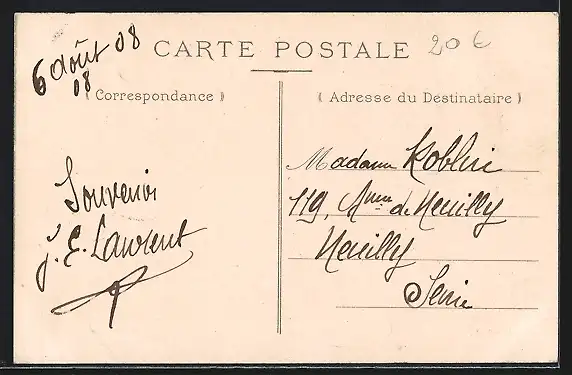 6 Août 08
08
CARTE POSTALE
20 €
(Correspondance)
(Adresse du Destinataire)
Souvenir
J. E. Laurent
Madame Koblin
119, Anue de Neuilly
Neuilly
Seine